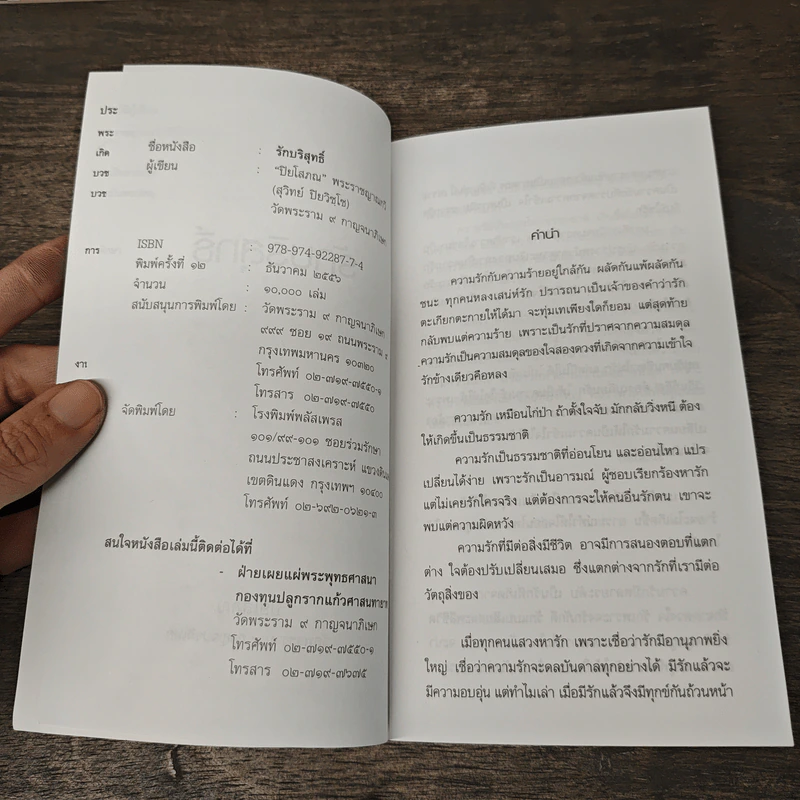 ประ
พระ
เกิด
บวช
บวช
การ
งาน
ชื่อหนังสือ : รักบริสุทธิ์
ผู้เขียน : "ปิยโสภณ" พระราชญาณกวี
(สุวิทย์ ปิยวิชฺโช)
วัดพระราม ๙ กาญจนาภิเษก
ISBN : 978-974-92287-7-4
พิมพ์ครั้งที่ ๑๒ : ธันวาคม ๒๕๕๖
จำนวน : ๑๐,๐๐๐ เล่ม
สนับสนุนการพิมพ์โดย : วัดพระราม ๙ กาญจนาภิเษก
๙๙๙ ซอย ๑๙ ถนนพระราม ๙
กรุงเทพมหานคร ๑๐๓๒๐
โทรศัพท์ ๐๒-๗๑๙-๗๕๕๐-๑
โทรสาร ๐๒-๗๑๙-๗๕๕๐
จัดพิมพ์โดย : โรงพิมพ์พลัสเพรส
๑๐๑/๙๙-๑๐๑ ซอยร่วมรักษา
ถนนประชาสงเคราะห์ แขวงดินแดง
เขตดินแดง กรุงเทพฯ ๑๐๔๐๐
โทรศัพท์ ๐๒-๖๙๒-๐๖๒๑-๓
สนใจหนังสือเล่มนี้ติดต่อได้ที่
- ฝ่ายเผยแผ่พระพุทธศาสนา
กองทุนปลูกรากแก้วศาสนทายาท
วัดพระราม ๙ กาญจนาภิเษก
โทรศัพท์ ๐๒-๗๑๙-๗๕๕๐-๑
โทรสาร ๐๒-๗๑๙-๗๖๗๕
คำนำ
ความรักกับความร้ายอยู่ใกล้กัน ผลัดกันแพ้ผลัดกัน
ชนะ ทุกคนหลงเสน่ห์รัก ปรารถนาเป็นเจ้าของคำว่ารัก
ตะเกียกตะกายให้ได้มา จะทุ่มเทเพียงใดก็ยอม แต่สุดท้าย
กลับพบแต่ความร้าย เพราะเป็นรักที่ปราศจากความสมดุล
ความรักเป็นความสมดุลของใจสองดวงที่เกิดจากความเข้าใจ
รักข้างเดียวคือหลง
ความรัก เหมือนไก่ป่า ถ้าตั้งใจจับ มักกลับวิ่งหนี ต้อง
ให้เกิดขึ้นเป็นธรรมชาติ
ความรักเป็นธรรมชาติที่อ่อนโยน และอ่อนไหว แปร
เปลี่ยนได้ง่าย เพราะรักเป็นอารมณ์ ผู้ชอบเรียกร้องหารัก
แต่ไม่เคยรักใครจริง แต่ต้องการจะให้คนอื่นรักตน เขาจะ
พบแต่ความผิดหวัง
ความรักที่มีต่อสิ่งมีชีวิต อาจมีการสนองตอบที่แตก
ต่าง ใจต้องปรับเปลี่ยนเสมอ ซึ่งแตกต่างจากรักที่เรามีต่อ
วัตถุสิ่งของ
เมื่อทุกคนแสวงหารัก เพราะเชื่อว่ารักมีอานุภาพยิ่ง
ใหญ่ เชื่อว่าความรักจะดลบันดาลทุกอย่างได้ มีรักแล้วจะ
มีความอบอุ่น แต่ทำไมเล่า เมื่อมีรักแล้วจึงมีทุกข์กันถ้วนหน้า